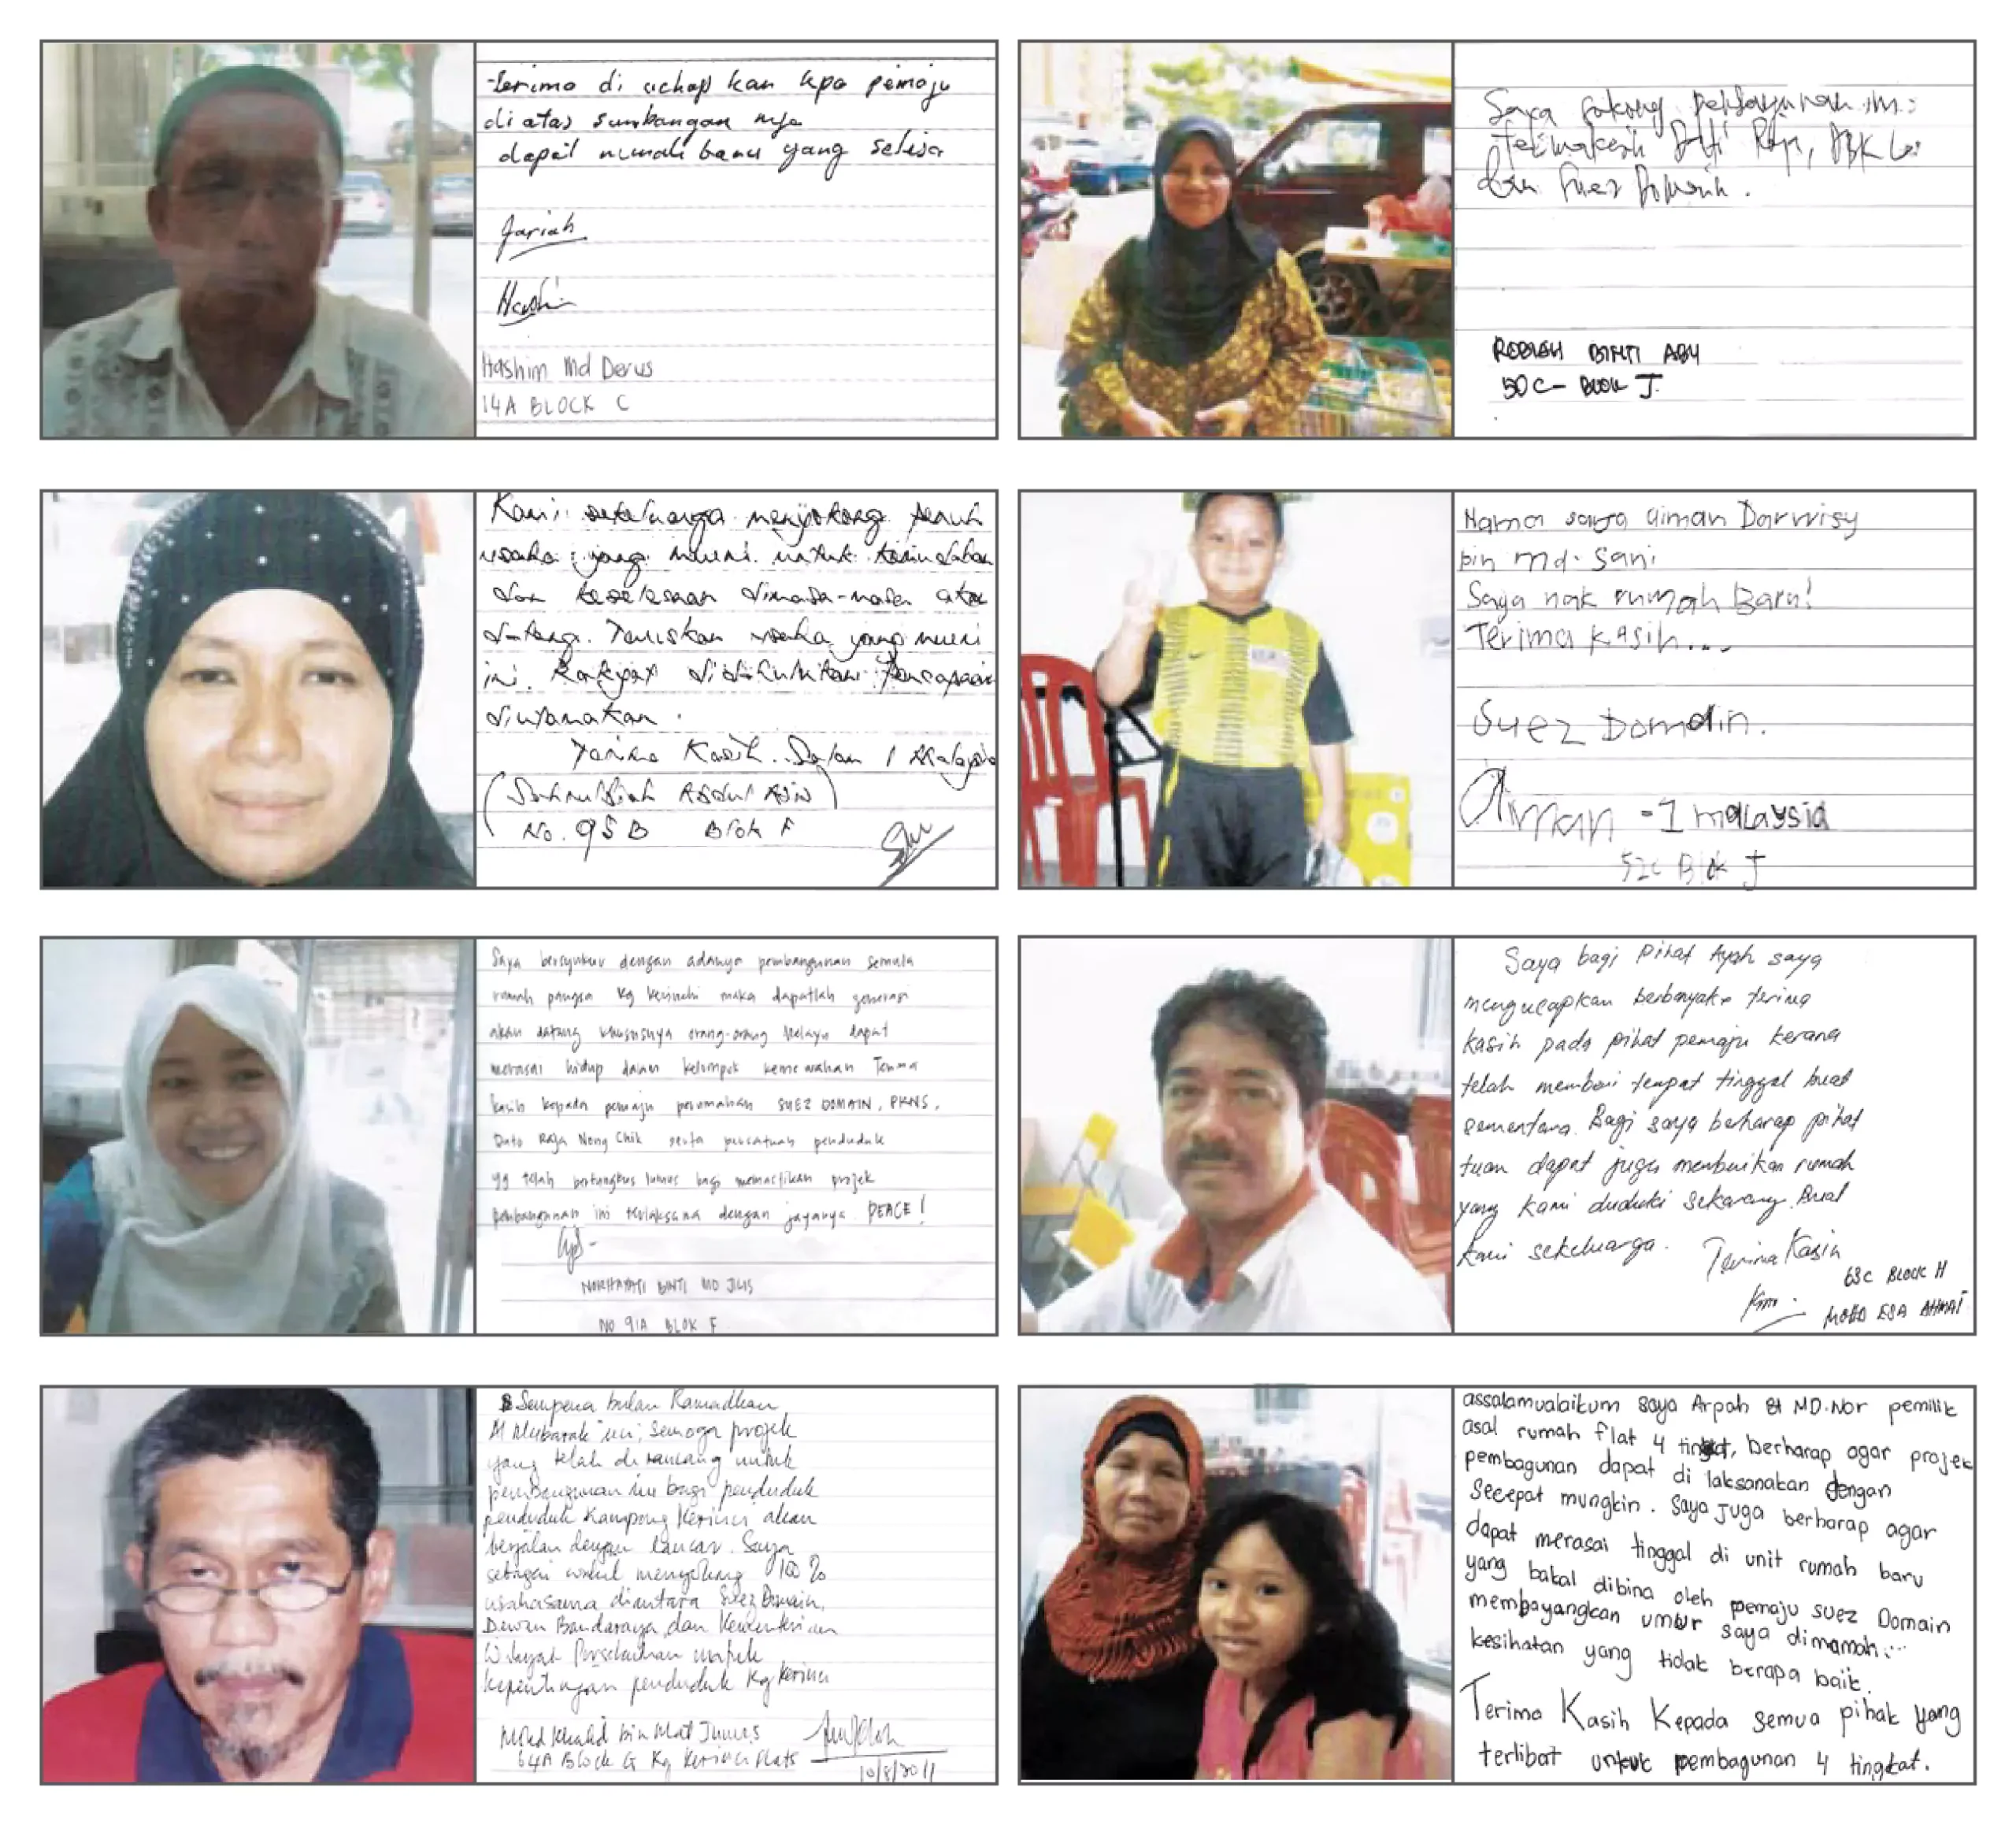 terima di uchap kan kpa pemaju
di atas sumbangan nya
dapat rumah baru yang selesa
Jariah
Hashim
Hashim Md Derus
14A BLOCK C
Saya sokong pembangunan ini
Terimakasih
dan Suez Domain.
ROBIAH BINTI ABU
50C - BLOK J.
Kami sekeluarga menyokong penuh
usaha yang murni untuk keindahan
dan keselesaan dimasa-masa akan
datang. Teruskan usaha yang murni
ini. Rakyat didahulukan Pencapaian
diutamakan.
Terima Kasih. Salam 1 Malaysia
No. 95 B Blok F
Nama saya aiman Darwisy
bin md. Sani
Saya nak rumah Baru!
Terima kasih...
Suez Domain.
Aiman - 1 malaysia
52C Blok J
Saya bersyukur dengan adanya pembangunan semula
rumah pangsa Kg Kerinchi maka dapatlah generasi
akan datang khususnya orang-orang Melayu dapat
merasai hidup dalam kelompok kemewahan Terima
kasih kepada pemaju perumahan SUEZ DOMAIN, PKNS,
Dato Raja Nong Chik serta persatuan penduduk
yg telah bertungkus lumus bagi memastikan projek
pembangunan ini terlaksana dengan jayanya. PEACE!
NORHAYATI BINTI MD JLIS
NO 91A BLOK F
Saya bagi pihak Ayah saya
mengucapkan berbanyak2 terima
kasih pada pihak pemaju kerana
telah memberi tempat tinggal buat
sementara. Bagi saya berharap pihak
tuan dapat juga memberikan rumah
yang kami duduki sekarang. Buat
kami sekeluarga. Terima Kasih
63C BLOCK H
MOHD ESA AHMAT
Sempena bulan Ramadhan
Al Mubarak ini, semoga projek
yang telah di rancang untuk
pembangunan ini bagi penduduk
penduduk Kampong Kerinci akan
berjalan dengan lancar. Saya
sebagai wakil menyokong 100%
usahasama diantara Suez Domain,
Dewan Bandaraya dan Kementerian
Wilayah Persekutuan untuk
kepentingan penduduk Kg Kerinci
Mohd Khalid bin Mat Junus
64A Block G Kg Kerinci Flats
10/8/2011
assalamualaikum saya Arpah Bt MD.Nor pemilik
asal rumah flat 4 tingkat, berharap agar projek
pembagunan dapat di laksanakan dengan
secepat mungkin. Saya juga berharap agar
dapat merasai tinggal di unit rumah baru
yang bakal dibina oleh pemaju suez Domain
membayangkan umur saya dimamah...
kesihatan yang tidak berapa baik.
Terima Kasih Kepada semua pihak yang
terlibat untuk pembagunan 4 tingkat.